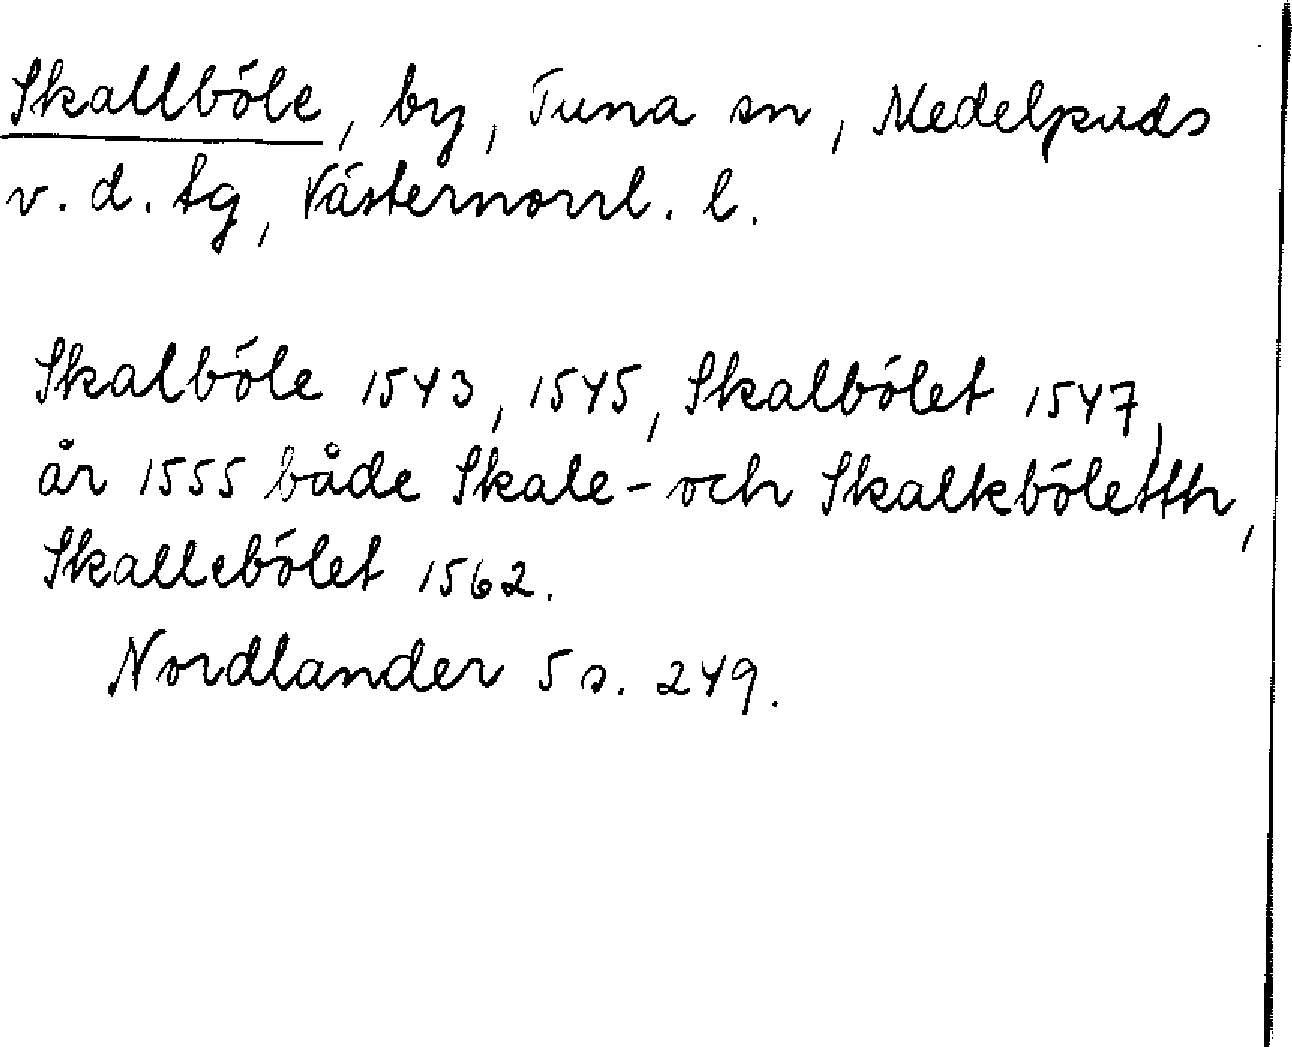 Skallböle, by, Tuna sn, Medelpads
v. d. tg, Västernorrl. l.
Skalböle 1543, 1545, Skalbölet 1547,
år 1555 både Skale- och Skalkböletth,
Skallebölet 1562.
Nordlander 5 s. 249.